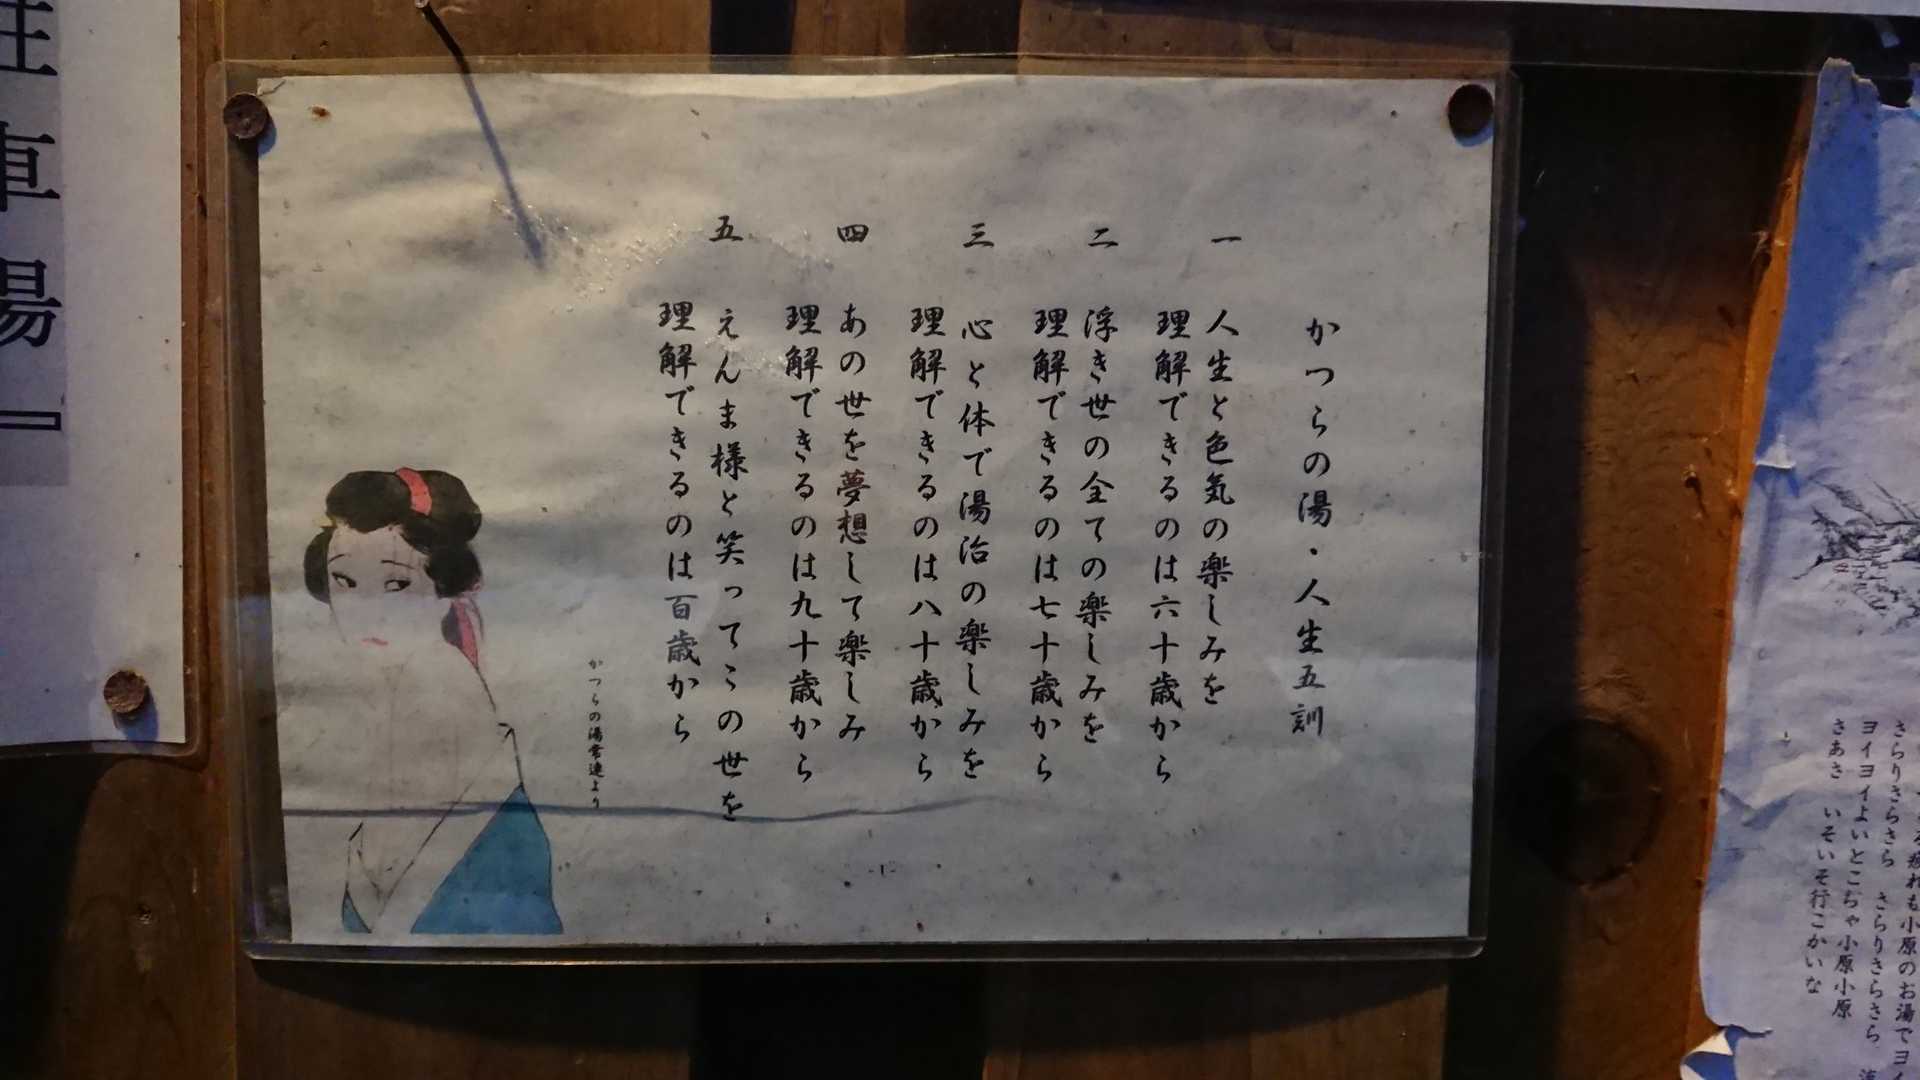 かつらの湯・人生五訓
一 人生と色気の楽しみを
理解できるのは六十歳から
二 浮き世の全ての楽しみを
理解できるのは七十歳から
三 心と体で湯治の楽しみを
理解できるのは八十歳から
四 あの世を夢想して楽しみ
理解できるのは九十歳から
五 えんま様と笑ってこの世を
理解できるのは百歳から
かつらの湯常連より
車湯』
疲れも小原のお湯でヨイ
さらりさらさら さらりさらさら
ヨイヨイよいとこぢゃ小原小原
さあさ いそいそ行こかいな